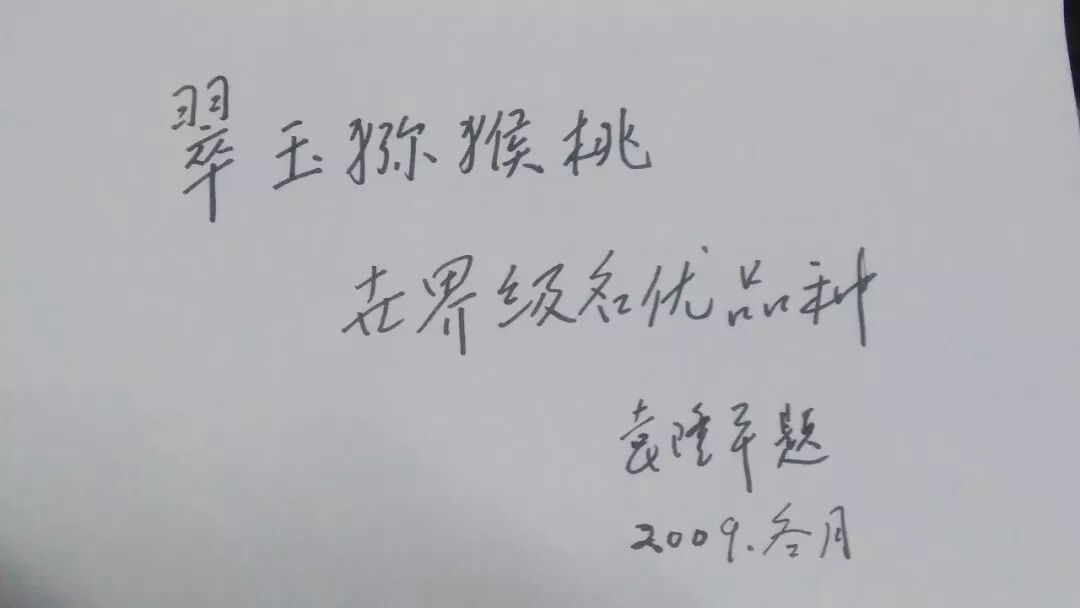 翠玉猕猴桃
世界级名优品种
袁隆平题
2009.冬月